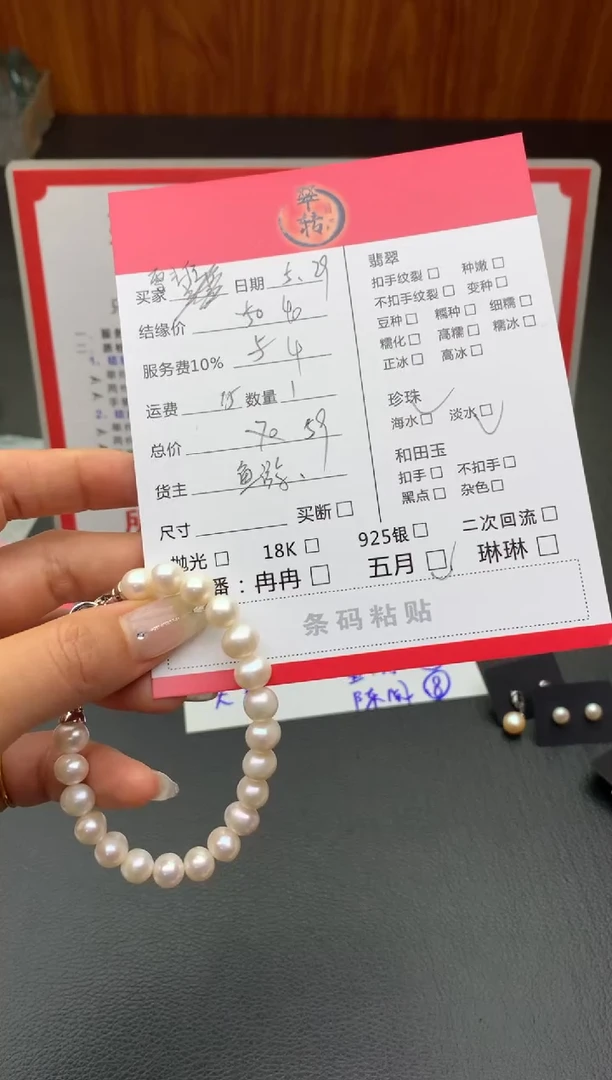 翠括
买家 日期 5.29
结缘价 50 40
服务费10% 5 4
运费 15 数量 1
总价 70 59
货主
尺寸 买断 □
抛光 □ 18K □ 925银 □ 二次回流 □
番：冉冉 □ 五月 □ 琳琳 □
条码粘贴
翡翠
扣手纹裂 □ 种嫩 □
不扣手纹裂 □ 变种 □
豆种 □ 糯种 □ 细糯 □
糯化 □ 高糯 □ 糯冰 □
正冰 □ 高冰 □
珍珠
海水 □ 淡水 □
和田玉
扣手 □ 不扣手 □
黑点 □ 杂色 □
一、服务
二、
1、
2、
⑧